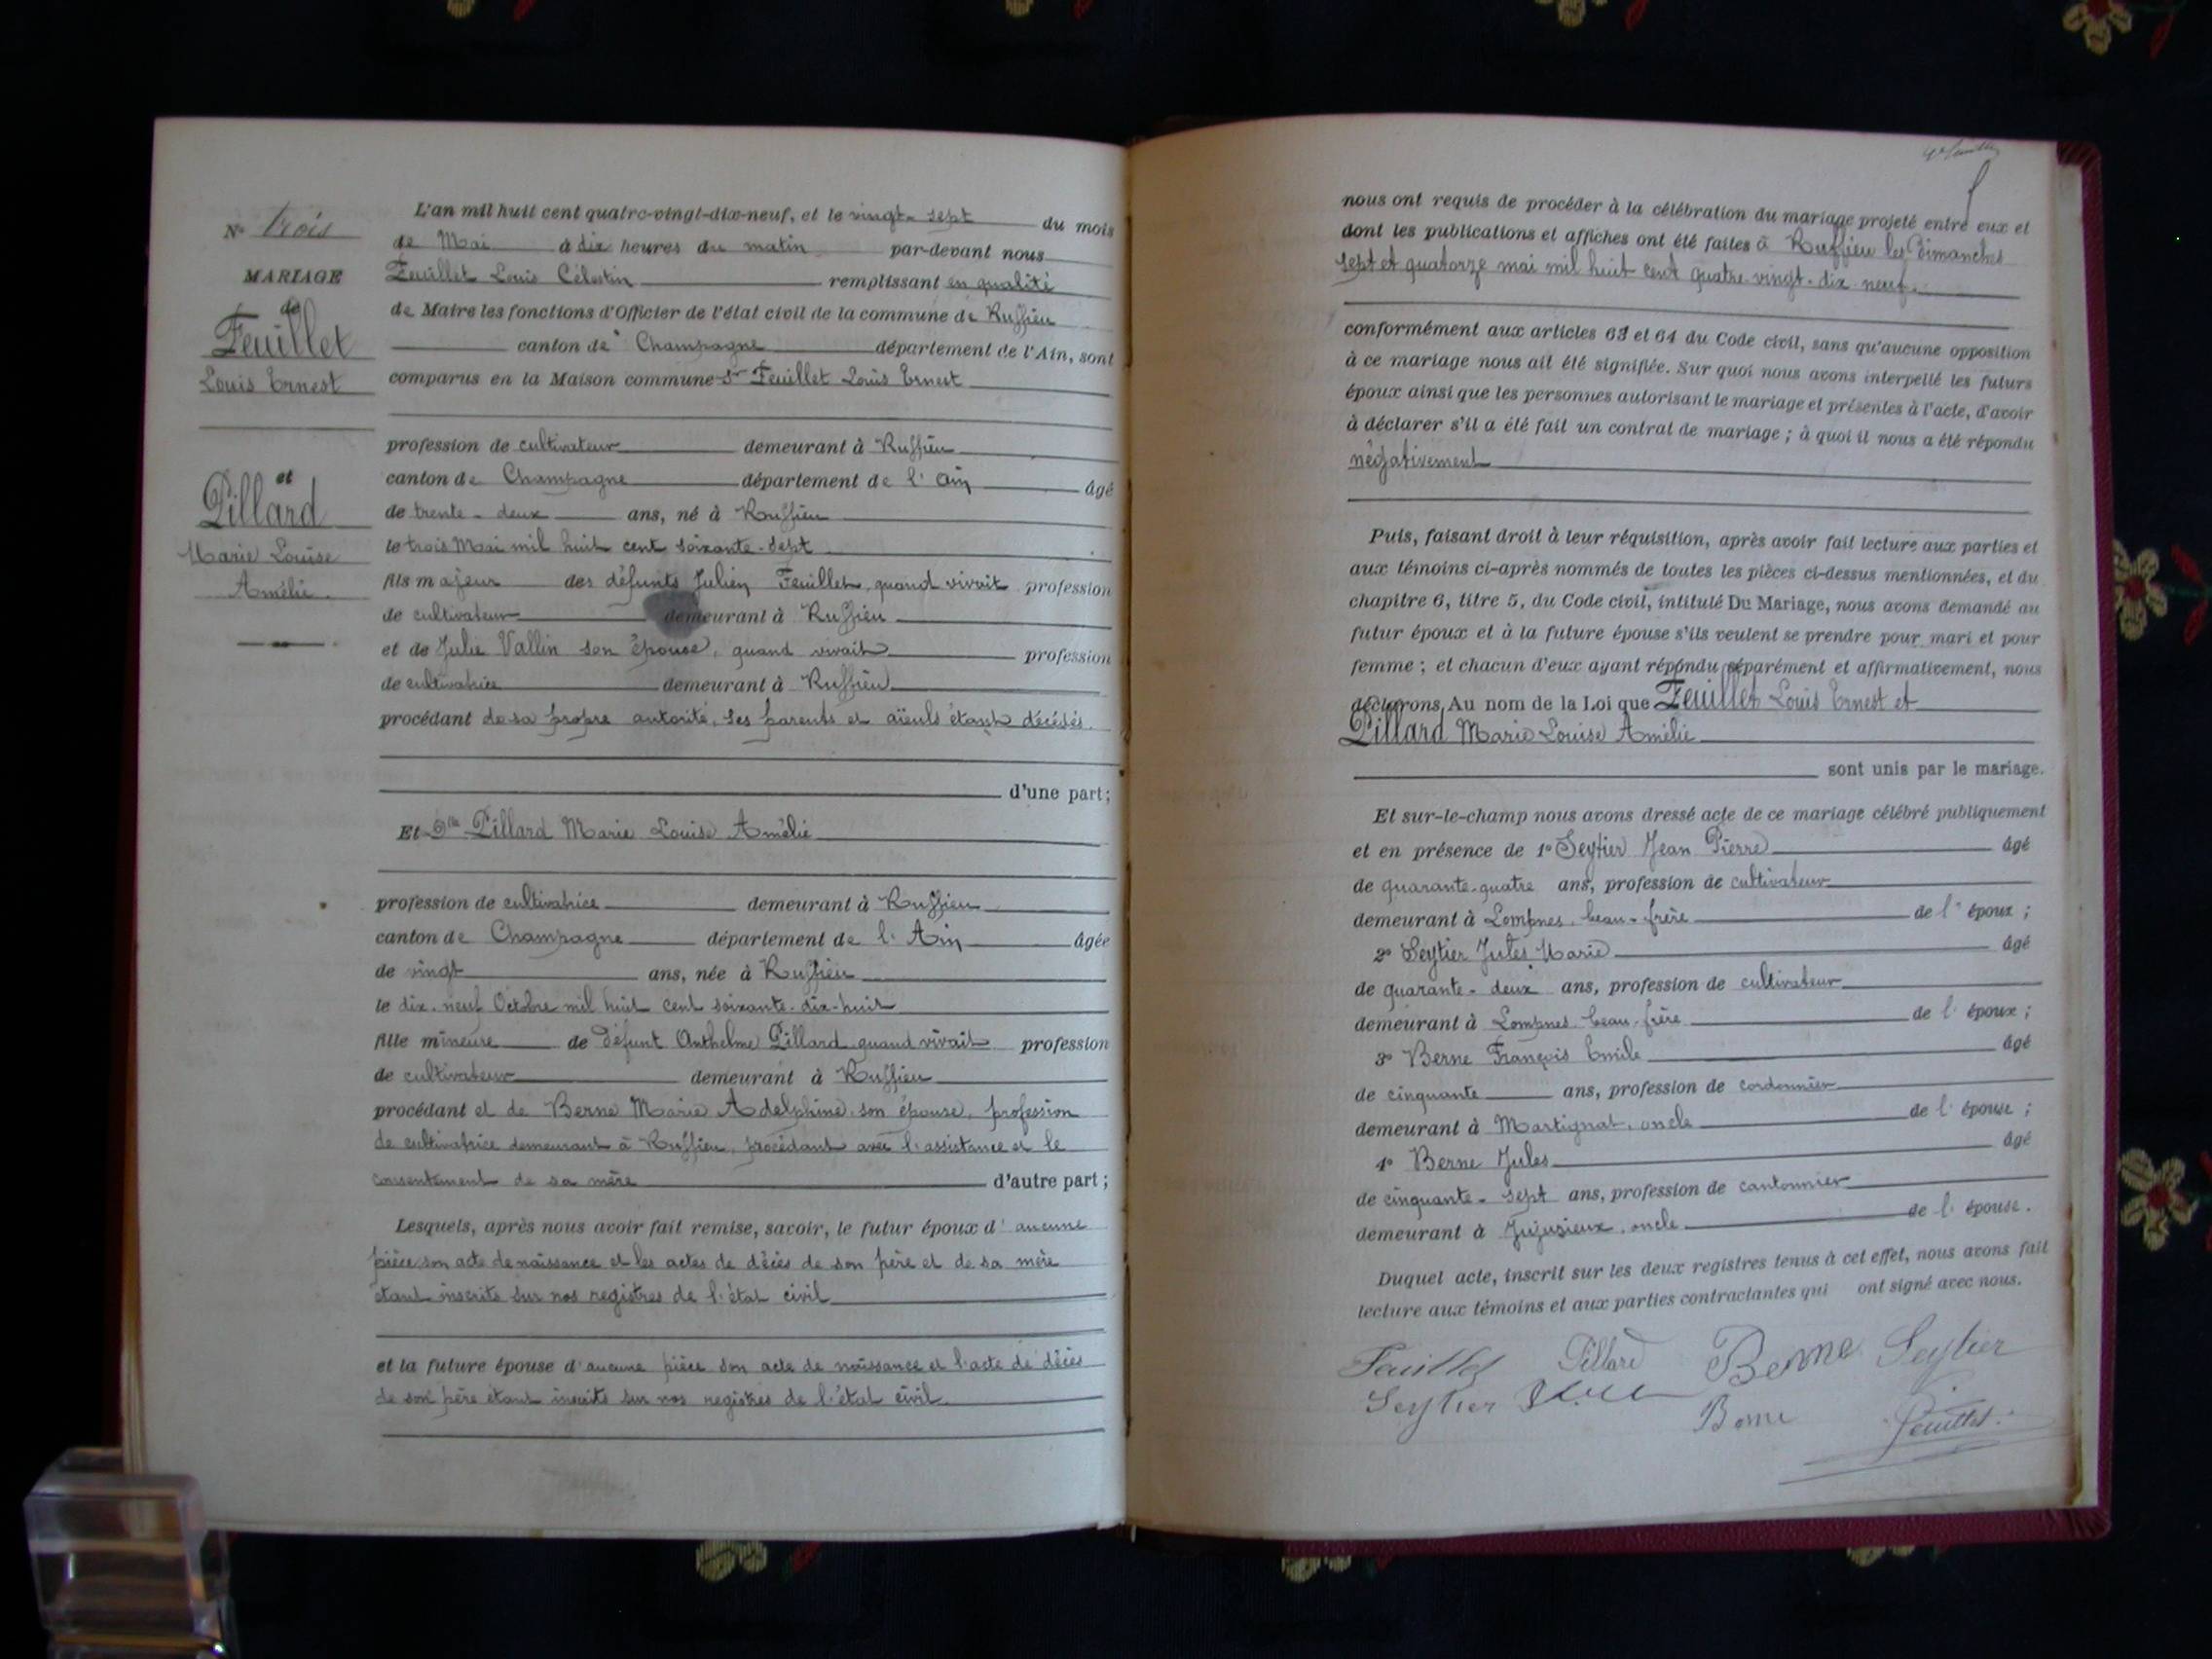 N° Trois
MARIAGE
de
Feuillet
Louis Ernest
et
Pillard
Marie Louise
Amélie.
L'an mil huit cent quatre-vingt-dix-neuf, et le vingt-sept du mois
de Mai à dix heures du matin par-devant nous
Feuillet Louis Célestin remplissant en qualité
de Maire les fonctions d'Officier de l'état civil de la commune de Ruffieu
canton de Champagne département de l'Ain, sont
comparus en la Maison commune Sr Feuillet Louis Ernest
profession de cultivateur demeurant à Ruffieu
canton de Champagne département de l'Ain âgé
de trente-deux ans, né à Ruffieu
le trois Mai mil huit cent soixante-sept
fils majeur des défunts Julien Feuillet, quand vivait profession
de cultivateur demeurant à Ruffieu
et de Julie Vallin son épouse, quand vivait profession
de cultivatrice demeurant à Ruffieu
procédant de sa propre autorité, ses parents et aïeuls étant décédés.
d'une part;
Et Dlle Pillard Marie Louise Amélie
profession de cultivatrice demeurant à Ruffieu
canton de Champagne département de l'Ain âgée
de vingt ans, née à Ruffieu
le dix-neuf Octobre mil huit cent soixante-dix-huit
fille mineure de défunt Anthelme Pillard quand vivait profession
de cultivateur demeurant à Ruffieu
procédant et de Berne Marie Adelphine son épouse, profession
de cultivatrice demeurant à Ruffieu, procédant avec l'assistance et le
consentement de sa mère d'autre part;
Lesquels, après nous avoir fait remise, savoir, le futur époux d'aucune
pièce son acte de naissance et les actes de décès de son père et de sa mère
étant inscrits sur nos registres de l'état civil
et la future épouse d'aucune pièce son acte de naissance et l'acte de décès
de son père étant inscrits sur nos registres de l'état civil.
nous ont requis de procéder à la célébration du mariage projeté entre eux et
dont les publications et affiches ont été faites à Ruffieu les Dimanches
sept et quatorze mai mil huit cent quatre-vingt-dix-neuf.
conformément aux articles 63 et 64 du Code civil, sans qu'aucune opposition
à ce mariage nous ait été signifiée. Sur quoi nous avons interpellé les futurs
époux ainsi que les personnes autorisant le mariage et présentes à l'acte, d'avoir
à déclarer s'il a été fait un contrat de mariage; à quoi il nous a été répondu
négativement
Puis, faisant droit à leur réquisition, après avoir fait lecture aux parties et
aux témoins ci-après nommés de toutes les pièces ci-dessus mentionnées, et du
chapitre 6, titre 5, du Code civil, intitulé Du Mariage, nous avons demandé au
futur époux et à la future épouse s'ils veulent se prendre pour mari et pour
femme; et chacun d'eux ayant répondu séparément et affirmativement, nous
déclarons, Au nom de la Loi que Feuillet Louis Ernest et
Pillard Marie Louise Amélie
sont unis par le mariage.
Et sur-le-champ nous avons dressé acte de ce mariage célébré publiquement
et en présence de 1° Seytier Jean Pierre âgé
de quarante-quatre ans, profession de cultivateur
demeurant à Lompnes, beau-frère de l'époux;
2° Seytier Jules Marie âgé
de quarante-deux ans, profession de cultivateur
demeurant à Lompnes beau-frère de l'époux;
3° Berne François Emile âgé
de cinquante ans, profession de cordonnier
demeurant à Martignat, oncle de l'épouse;
4° Berne Jules âgé
de cinquante-sept ans, profession de cantonnier
demeurant à Jujurieux, oncle de l'épouse.
Duquel acte, inscrit sur les deux registres tenus à cet effet, nous avons fait
lecture aux témoins et aux parties contractantes qui ont signé avec nous.
Feuillet Pillard Berne Seytier
Seytier Berne Feuillet